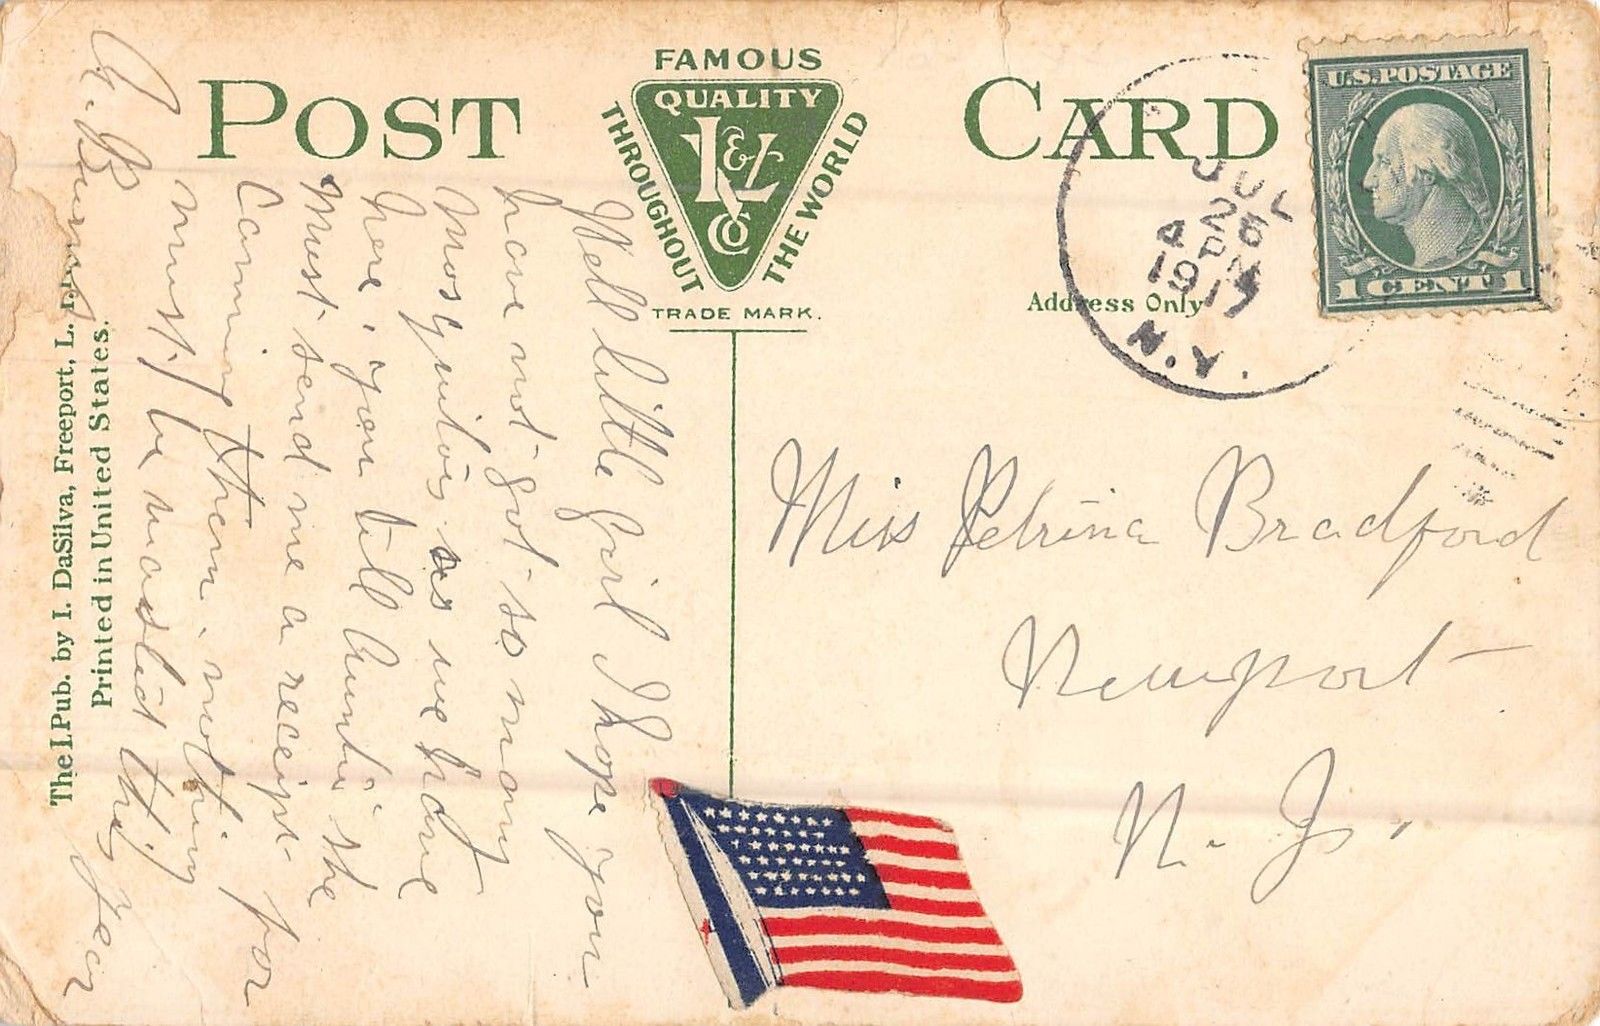 POST CARD
FAMOUS
QUALITY
K & L
Co
THROUGHOUT
THE WORLD
TRADE MARK.
Address Only
U.S. POSTAGE
1 CENT 1
JUL
26
4 PM
1917
N.Y.
Miss Petrina Bradford
Newport
N. J.
Well little girl I hope you
have not got so many
Mosquitos as we have
here. you tell Auntie she
Must send me a receipt for
Canning them. nothing
must be wasted this
year
A. B.
The I. Pub. by I. DaSilva, Freeport, L.
Printed in United States.